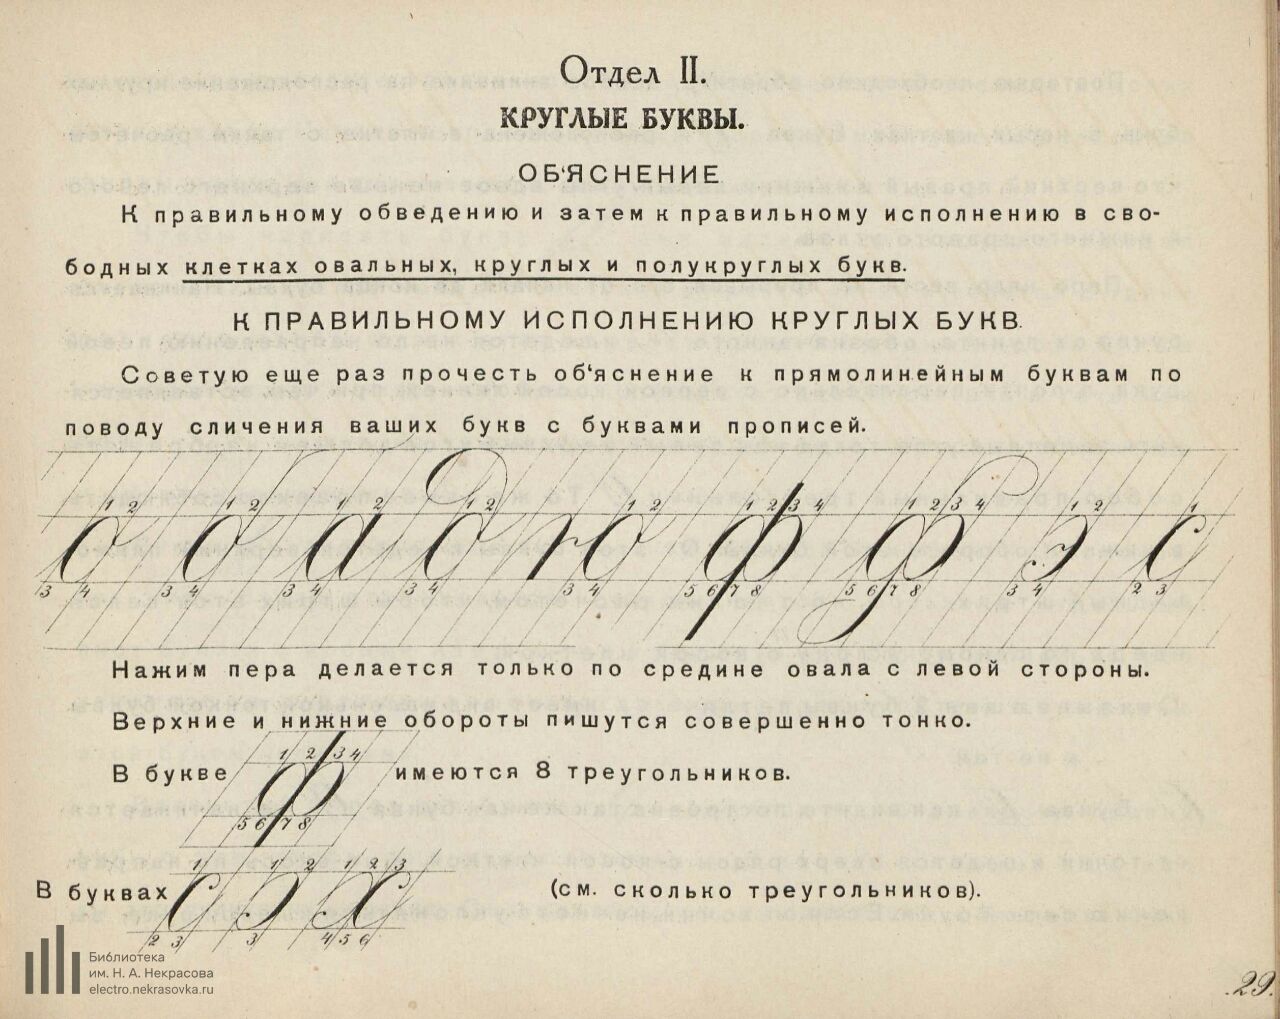 Отдел II.
КРУГЛЫЕ БУКВЫ.
ОБ'ЯСНЕНИЕ
К правильному обведению и затем к правильному исполнению в сво-
бодных клетках овальных, круглых и полукруглых букв.
К ПРАВИЛЬНОМУ ИСПОЛНЕНИЮ КРУГЛЫХ БУКВ.
Советую еще раз прочесть об'яснение к прямолинейным буквам по
поводу сличения ваших букв с буквами прописей.
1 2 1 2 1 2 1 2 1 2 1 2 3 4 1 2 3 4 1 2 1
о о а д ю ф ф э с
3 4 3 4 3 4 3 4 3 4 5 6 7 8 5 6 7 8 3 4 2 3
Нажим пера делается только по средине овала с левой стороны.
Верхние и нижние обороты пишутся совершенно тонко.
1 2 3 4
В букве ф имеются 8 треугольников.
5 6 7 8
1 1 2 1 2 3
В буквах с э х (см. сколько треугольников).
2 3 3 4 5 6
Библиотека
им. Н. А. Некрасова
electro.nekrasovka.ru
29.